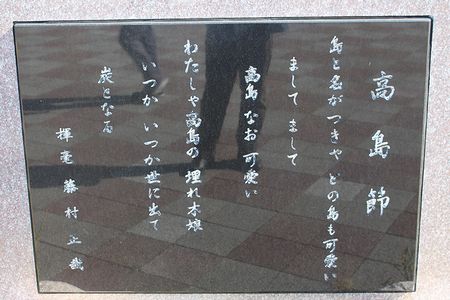 高島節
島と名がつきやどの島も可愛い
ましてまして
高島なお可愛い
わたしや高島の埋れ木娘
いつかいつか世に出て
炭となる
揮毫 藤村正哉